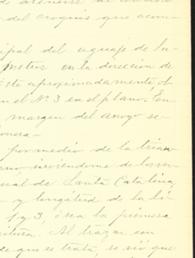 del croquis que acom-
ipal del aguaje de la-
metros en la dirección de
cto aproximadamente, ó
n el Nº 3 en el plano. En
margen del arroyo se
por medio de la trian
rno, sirviéndome de
ual de Santa Catalina,
y longitud de la lí
1 y 3, ó sea la primera
Al trazar
de que se trata, es que